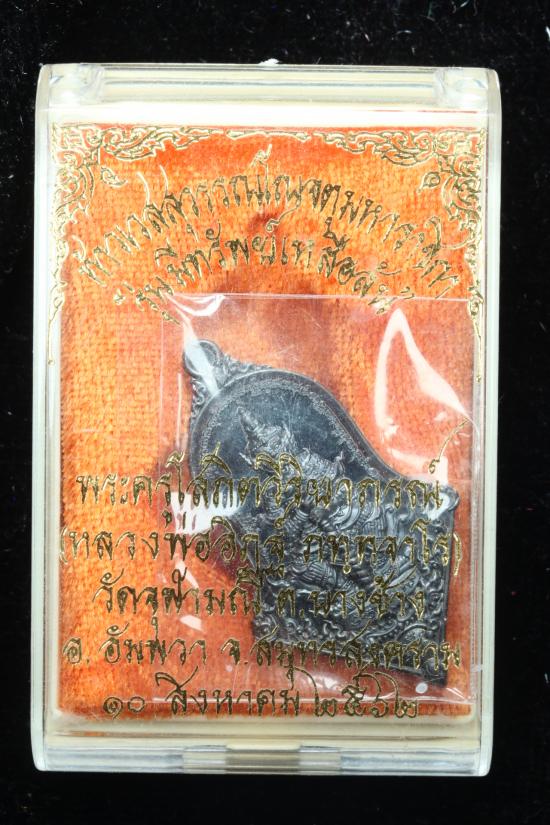 ท้าวเวสสุวรรณโณจตุมหาราชิกา
รุ่นมีทรัพย์เหลือล้น
พระครูโสภิตวิริยาภรณ์
(หลวงพ่ออิฏฐ์ ภทฺทจาโร)
วัดจุฬามณี ต.บางช้าง
อ. อัมพวา จ.สมุทรสงคราม
๑๐ สิงหาคม ๒๕๖๒